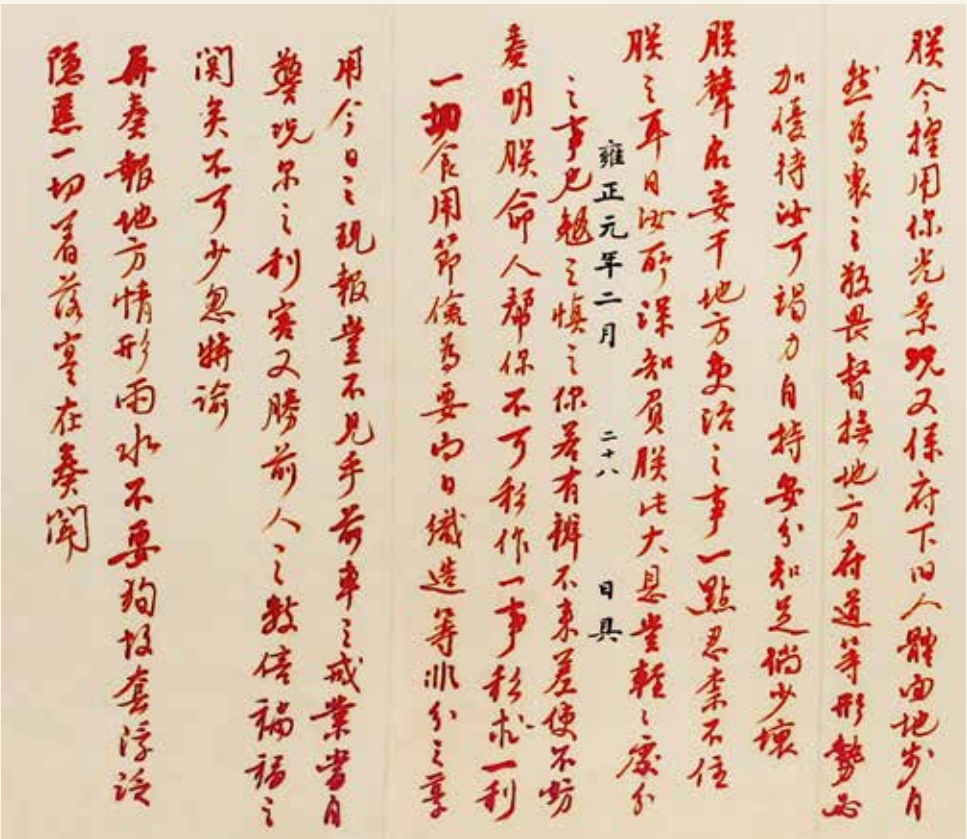 朕今擢用你光景況又係府下旧人體面地步自
然為衆之敬畏督撫地方府道等形勢必
加優待汝可竭力自持安分知足倘少壞
朕聲名妄干地方吏治之事一點忍柰不住
朕之耳目汝所深知負朕此大恩豈輕々處分
雍正元年二月 二十八 日具
之事也勉之慎之你若有辦不來差使不妨
奏明朕命人幫你不可私作一事私求一利
一切食用節儉為要向日織造等非分之享
用今日之現報豈不見乎前車之戒業當自
警況尔之利害又勝前人之數倍禍福之
関矣不可少忽特諭
再奏報地方情形雨水不要狥故套浮泛
隱匿一切着落寔在奏聞